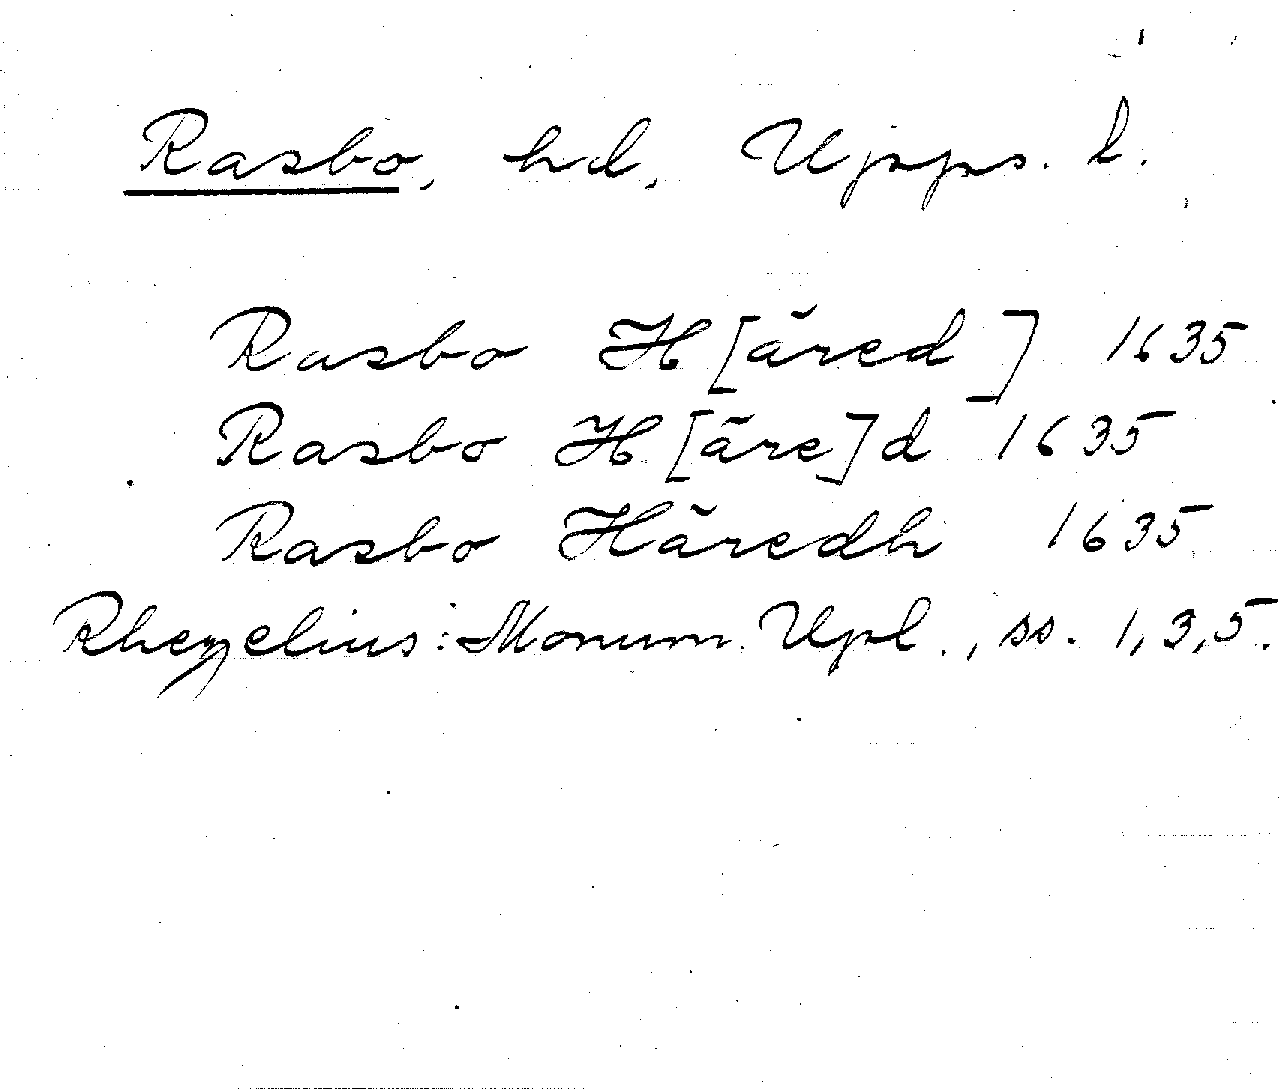 Rasbo, hd, Upps. l.
Rasbo H[äred] 1635
Rasbo H[äre]d 1635
Rasbo Häredh 1635
Rhezelius: Monum. Upl., ss. 1, 3, 5.